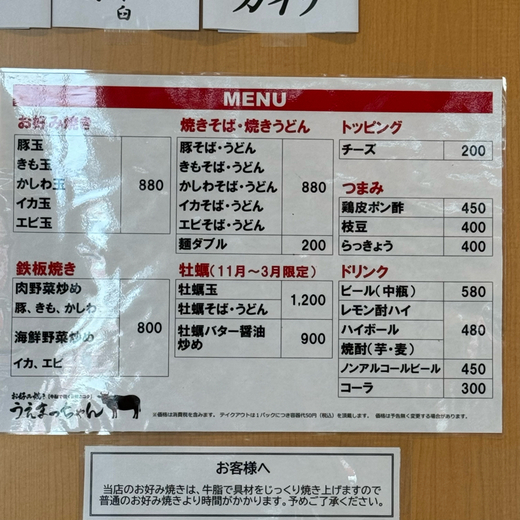 臼
カイノ
MENU
お好み焼き
豚玉
きも玉
かしわ玉 880
イカ玉
エビ玉
鉄板焼き
肉野菜炒め
豚、きも、かしわ
800
海鮮野菜炒め
イカ、エビ
焼きそば・焼きうどん
豚そば・うどん
きもそば・うどん
かしわそば・うどん 880
イカそば・うどん
エビそば・うどん
麺ダブル 200
牡蠣(11月～3月限定)
牡蠣玉
1,200
牡蠣そば・うどん
牡蠣バター醤油
炒め
900
トッピング
チーズ 200
つまみ
鶏皮ポン酢 450
枝豆 400
らっきょう 400
ドリンク
ビール(中瓶) 580
レモン酎ハイ
ハイボール 480
焼酎(芋・麦)
ノンアルコールビール 450
コーラ 300
お好み焼き
うえまっちゃん
※価格は消費税を含みます。 テイクアウトは1パックにつき容器代50円(税込)を頂戴します。 価格は予告無く変更する場合があります。
お客様へ
当店のお好み焼きは、牛脂で具材をじっくり焼き上げますので
普通のお好み焼きより時間がかかります。予めご了承ください。